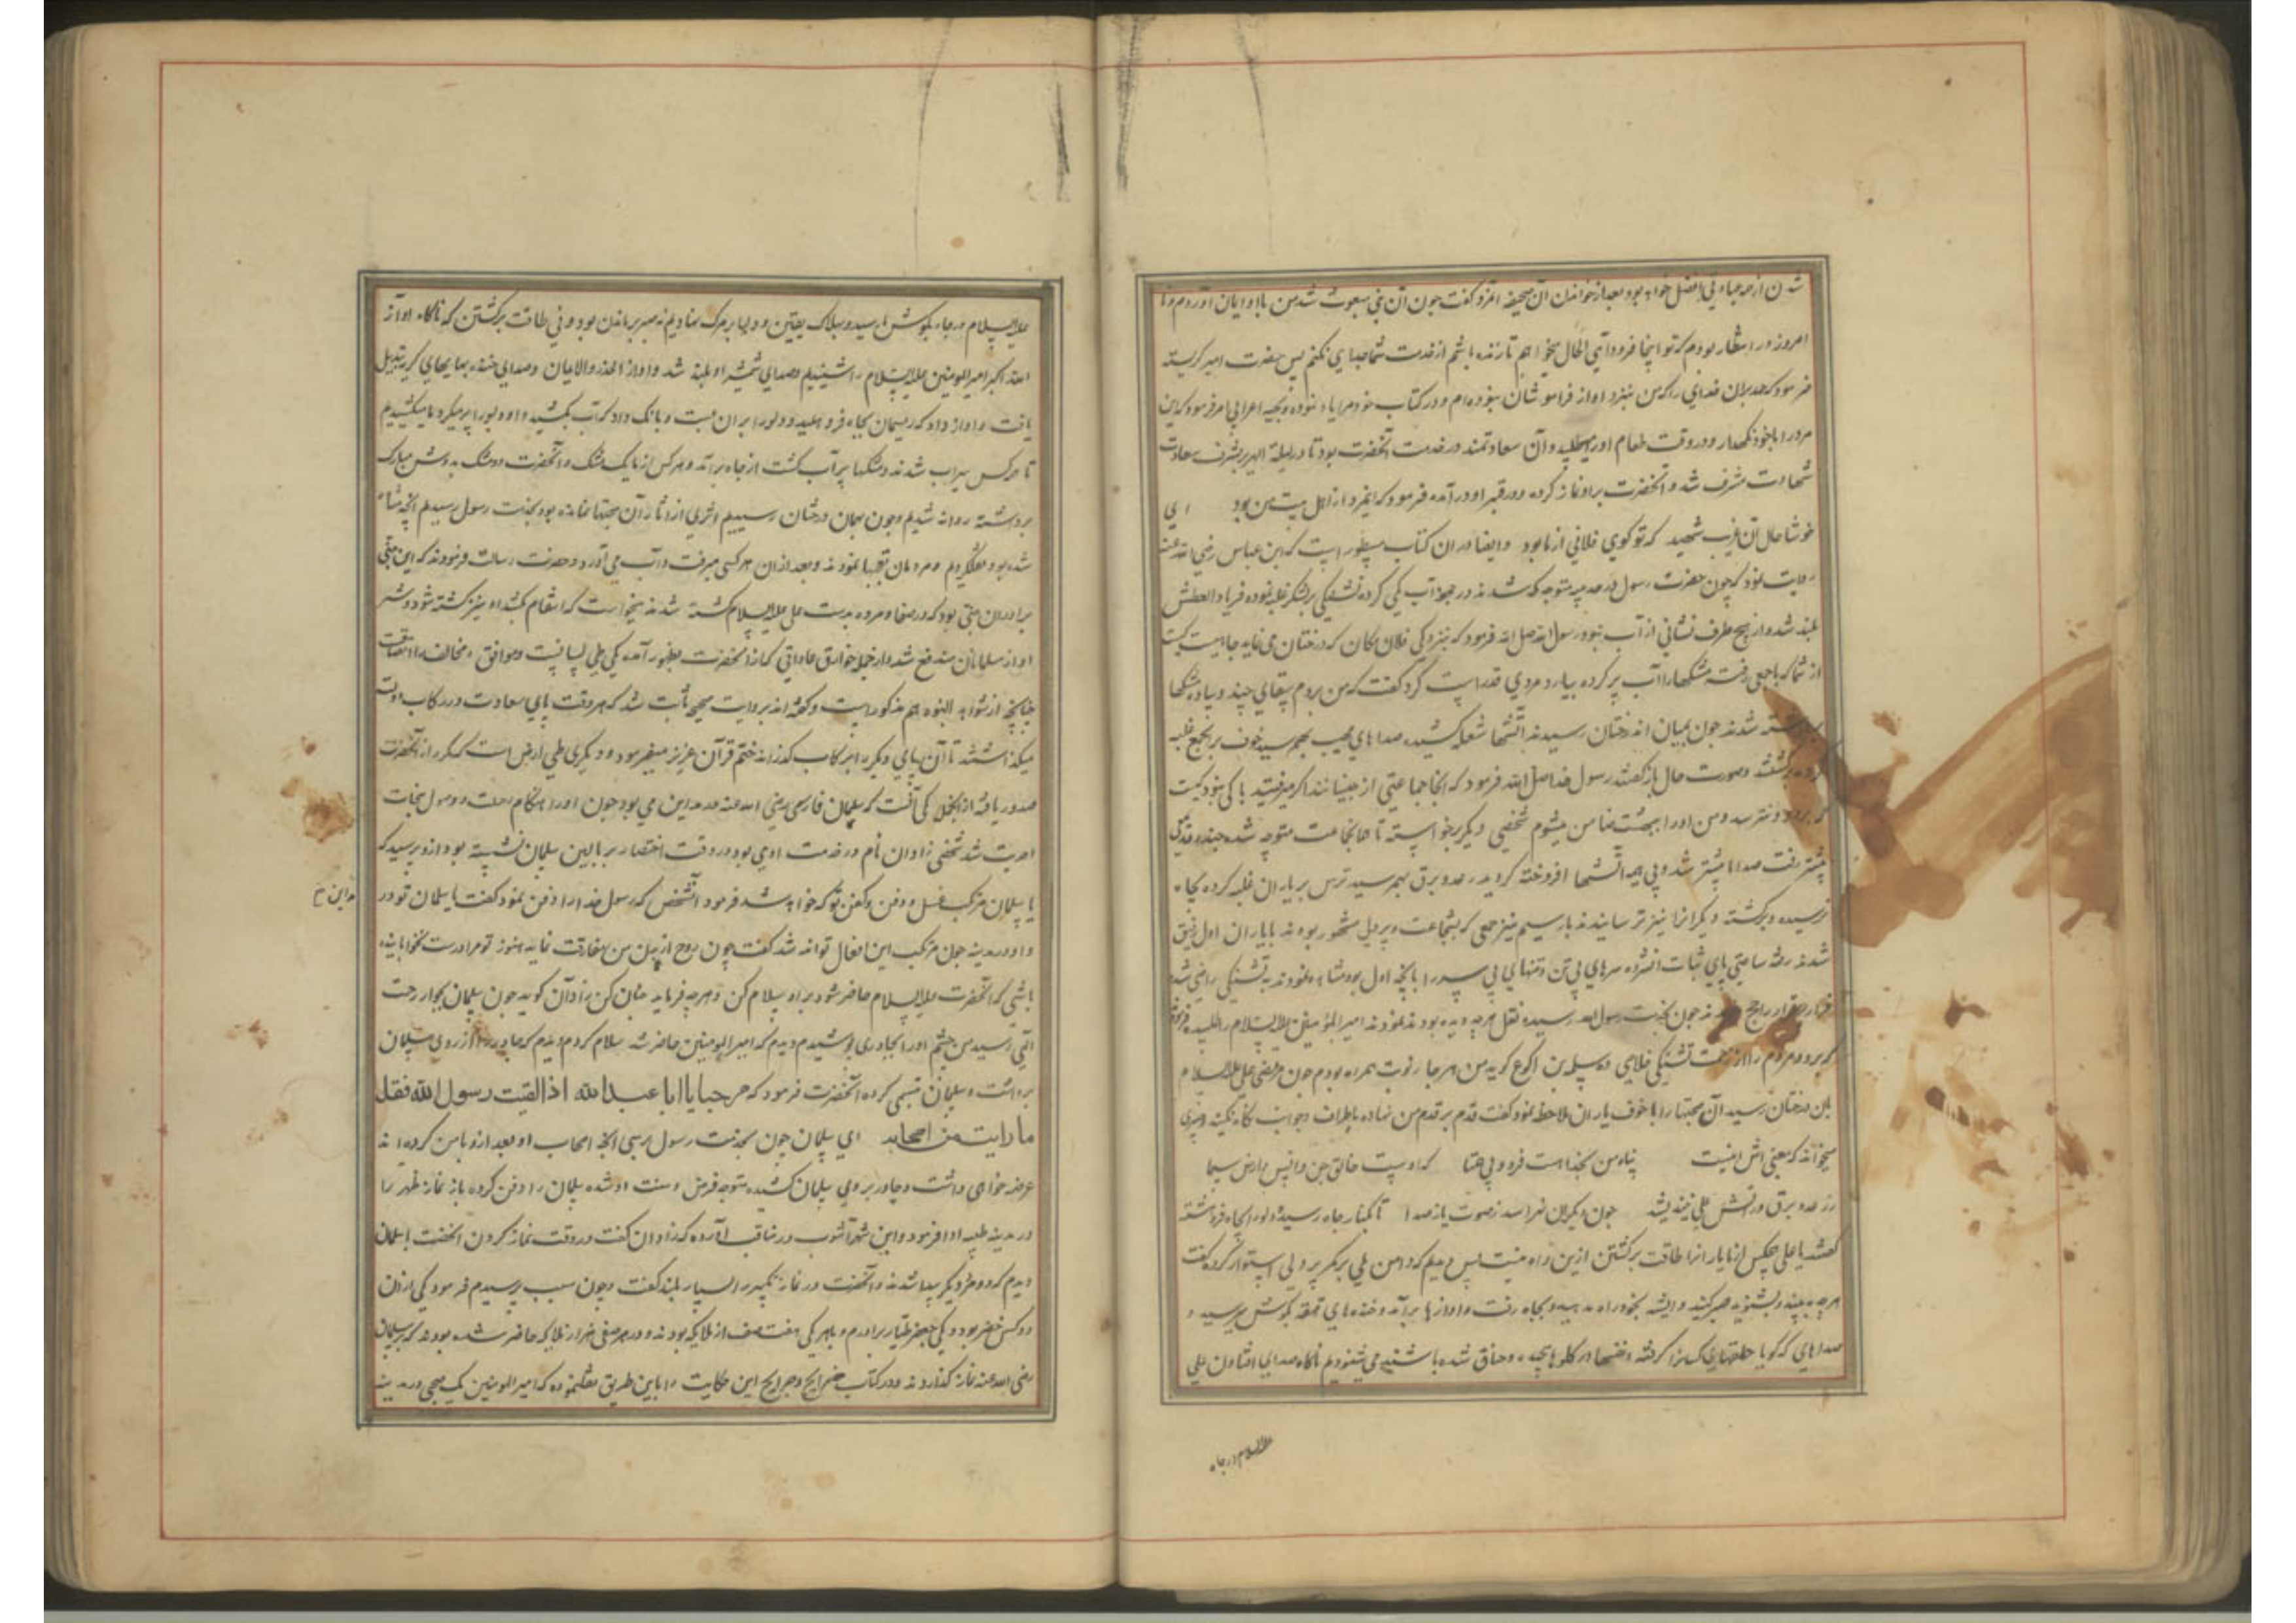 شدن از همه عبادتی افضل خواهد بود بعد از خواندن آن صحیفه آنمرد گفت چون آن نبی مبعوث شد من باو ایمان آوردم و تا
امروز در انتظار بودم که تو اینجا فرود آئی الحال میخواهم تا زنده باشم از خدمت شما جدایی نکنم پس حضرت امیر گریسته
فرمود که حمد بر آن خدای را که من نبزد او از فراموشان نبوده ام و در کتاب خود مرا یاد نموده و بجبه اعرابی امر فرمود که این
مرد را با خود نگهدار و در وقت طعام او را میطلبید و آن سعادتمند در خدمت آنحضرت بود تا در لیلة الهریر بشرف سعادت
شهادت مشرف شد و آنحضرت برو نماز کرده و در قبر او در آمده فرمود که اینمرد از اهل بیت من بود ای
خوشا حال آن غریب شهید که تو گوی فلانی از ما بود و ایضا در آن کتاب مسطور است که ابن عباس رضی الله عنه
روایت نمود که چون حضرت رسول در حدیبیه متوجه مکه شدند در جهواتب یکی کرده تشنگی بر لشکر غلبه نموده فریاد العطش
بلند شد و از هیچ طرف نشانی از آب نبود رسول الله صلی الله فرمود که نبزدیکی فلان مکان که درختان می نماید چاهیست کیست
از شما که با جمعی رفته مشکها را آب پر کرده بیارد مردی قد راست کرد گفت که من بروم سقایی چند و پیاده مشکها
برداشته شدند چون بمیان درختان رسیدند آتشها شعله کشیده صداهای مهیب بهم رسید خوف بر جمع غلبه
کرده برگشتند و صورت حال باز گفتند رسول خدا صلی الله فرمود که آنجا جماعتی از جنیانند اگر میرفتید باکی نبود کیست
که برود و نترسد و من او را ببهشت ضامن میشوم شخصی دیگر برخواسته تا همانجماعت متوجه شده چند قدمی
پیشتر رفت صداها بیشتر شد و بی هیمه آتشها افروخته گردید رعد و برق بهم رسید ترس بر یاران غلبه کرده بچاه
نرسیده برگشته دیگرانرا نیز ترسانیدند بار سیم نیز جمعی که بشجاعت و پر دلی مشهور بودند با یاران اول رفیق
شدند رفته ساعتی پای ثبات افشرده سرهای بی تن و تنهای بی سر را با آنچه اول بود مشاهده نمودند به تشنگی راضی شده
فرار بر قرار راجح چون بخدمت رسول الله رسیده نقل هر چه دیده بودند نمودند امیر المؤمنین علیه السلام را طلبیده فرمود
که برو و مردم را از زحمت تشنگی خلاص ده سلمة بن اکوع گوید من هر چار نوبت همراه بودم چون مرتضی علی علیه السلام
بان درختان رسید آن محبتها را با خوف یاران ملاحظه نمود گفت قدم بر قدم من نهاده باطراف و جوانب نگاه نکنید و چیزی
میخواند که معنی اش اینست پناه من بخداست فرد و بی همتا که اوست خالق جن و انس و ارض و سما
ز رعد و برق و ز آتش علی نیندیشد چون دیگران نهراسد ز صوت یا ز صدا تا بکنار چاه رسید دلو را بچاه فرو هشته
گفتند یا علی هیچکس از ما یارانرا طاقت برگشتن ازین راه نیست پس دیدم که دامن علی بر کمر پر دلی استوار کرده گفت
هر چه ببینید و بشنوید صبر کنید و اندیشه بخود راه مدهید و بچاه رفت و آوازها برآمد و خنده های قهقهه بگوش میرسید و
صداهای که گویا حلقهای کسانرا گرفته و نفسها در گلوها پیچیده و خناق شده باشند می شنودیم ناگاه صدای افتادن علی
علیه السلام در چاه
علیه السلام در چاه بگوش ما رسید و بهلاک یقین و دلها بر مرگ نهادیم نه صبر بر ماندن بود و نی طاقت برگشتن که ناگاه آواز
الله اکبر امیر المومنین علیه السلام را شنیدیم و صدای شمشیر او بلند شد و آواز الحذر و الامان و صدای خنده بهایهای گریه تبدیل
یافت و آواز داد که ریسمان بچاه فرو هلید و دلو را بر آن بست و بانک داد که آب بکشید و او دلو را پر میکرد و ما میکشیدیم
تا هر کس سیراب شدند و مشکها پر آب گشت از چاه برآمد و هر کس از ما یک مشک و آنحضرت دو مشک بدوش مبارک
برداشته روانه شدیم و چون بهمان درختان رسیدیم اثری از آثار آن محبتها نمانده بود بخدمت رسول رسیدیم آنچه مشاهده
شده بود نقل کردیم و مردمان تعجبها نمودند و بعد از آن هر کسی میرفت و آب می آورد و حضرت رسالت فرمودند که این جنی
برادران جنی بود که در صفا و مروه بدست علی علیه السلام کشته شدند میخواست که انتقام کشد او نیز کشته شود و شر
او از مسلمانان مندفع شد و از جمله خوارق عاداتی که از آنحضرت بظهور آمده یکی طی لسانست و موافق و مخالف را اتفاقست
چنانچه از شواهد النبوه هم مذکور است و گفته اند بروایت صحیح ثابت شد که هر وقت پای سعادت در رکاب دولت
میگذاشتند تا آن پای دیگر را بر رکاب گذراند ختم قرآن عزیز میفرمود و دیگری طی ارض است که مکرر از آنحضرت
صدور یافته از آنجمله یکی آنست که سلمان فارسی رضی الله عنه در مداین می بود چون او را هنگام رحلت و وصول بجنات
احدیت شد شخصی زادان نام در خدمت او می بود در وقت احتضار بر بالین سلمان نشسته بود ازو پرسید که
یا سلمان مرتکب غسل و دفن و کفن تو که خواهد شد فرمود آنشخص که رسول خدا را دفن نمود گفت یا سلمان تو در
مداینی
و او در مدینه چون مرتکب این افعال تواند شد گفت چون روح از بدن من مفارقت نماید هنوز تو مرا درست نخوابانیده
باشی که آنحضرت علیه السلام حاضر شود بر او سلام کن و هر چه فرماید چنان کن زادان گوید چون سلمان بجوار رحمت
آلهی رسید من چشم او را بچادری پوشیدم دیدم که امیر المومنین حاضر شد سلام کردم دیدم که چادر را از روی سلمان
برداشت و سلمان تبسمی کرده آنحضرت فرمود که مرحبا یا ابا عبدالله اذا لقیت رسول الله فقل
ما رایت من اصحابه ای سلمان چون بخدمت رسول برسی آنچه اصحاب او بعد ازو با من کرده اند
عرضه خواهی داشت و چادر بر روی سلمان کشیده متوجه فرض و سنت او شده سلمان را دفن کرده باز نماز ظهر را
در مدینه طیبه ادا فرمود و ابن شهر آشوب در مناقب آورده که زادان گفت در وقت نماز کردن آنحضرت بسلمان
دیدم که دو مرد دیگر پیدا شدند و آنحضرت در نماز تکبیر را بسیار بلند گفت و چون سبب پرسیدم فرمود یکی از آن
دو کس خضر بود و یکی جعفر طیار برادرم و با هر یکی هفت صف از ملایکه بودند و در هر صفی هزار ملایکه حاضر شده بودند که بر سلمان
رضی الله عنه نماز گذاردند و در کتاب خرایج و جرایح این حکایت را باین طریق نقلنموده که امیر المومنین یک صبحی در مدینه